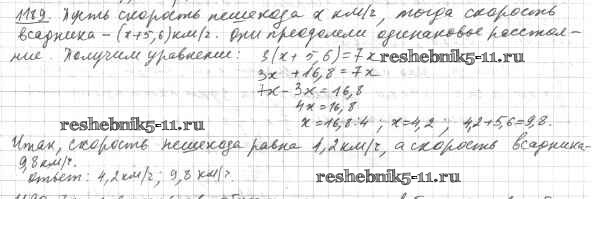 1189. Пусть скорость пешехода x км/г, тогда скорость
всадника – (x+5,6) км/г. Они преодолели одинаковое расстоя-
ние. Получим уравнение: 3(x+5,6)=7x
reshebnik5-11.ru
3x+16,8=7x
7x-3x=16,8
4x=16,8
reshebnik5-11.ru
x=16,8:4; x=4,2; 4,2+5,6=9,8.
Итак, скорость пешехода равна 1,2км/г, а скорость всадника-
9,8км/г.
reshebnik5-11.ru
ответ: 4,2км/г; 9,8 км/г.